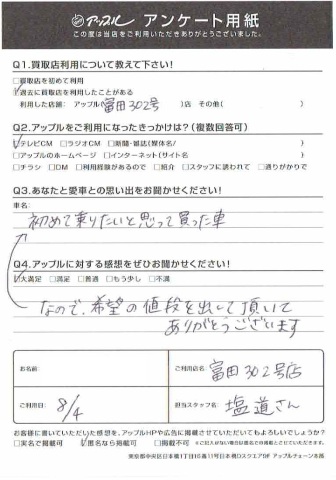 アップル アンケート用紙
この度は当店をご利用いただきありがとうございました。
Q1.買取店利用について教えて下さい!
□買取店を初めて利用
☑過去に買取店を利用したことがある
利用した店舗: アップル(富田302号)店 その他( )
Q2.アップルをご利用になったきっかけは?(複数回答可)
☑テレビCM □ラジオCM □新聞・雑誌(媒体名/ )
□アップルのホームページ □インターネット(サイト名 )
□チラシ □DM □利用経験があるので □紹介 □スタッフに誘われて □通りがかりで
Q3.あなたと愛車との思い出をお聞かせください!
車名:
初めて乗りたいと思って買った車
Q4.アップルに対する感想をぜひお聞かせください!
☑大満足 □満足 □普通 □もう少し □不満
なので、希望の値段を出して頂いて
ありがとうございます
お名前: ご利用店名: 富田302号店
ご利用日: 8/4 担当スタッフ名: 塩道さん
お客様に書いていただいた感想を、アップルHPや広告に掲載させていただいてもよろしいでしょうか?
□実名で掲載可 ☑匿名なら掲載可 □掲載不可
東京都中央区日本橋1丁目16番11号日本橋Dスクエア9F アップルチェーン本部